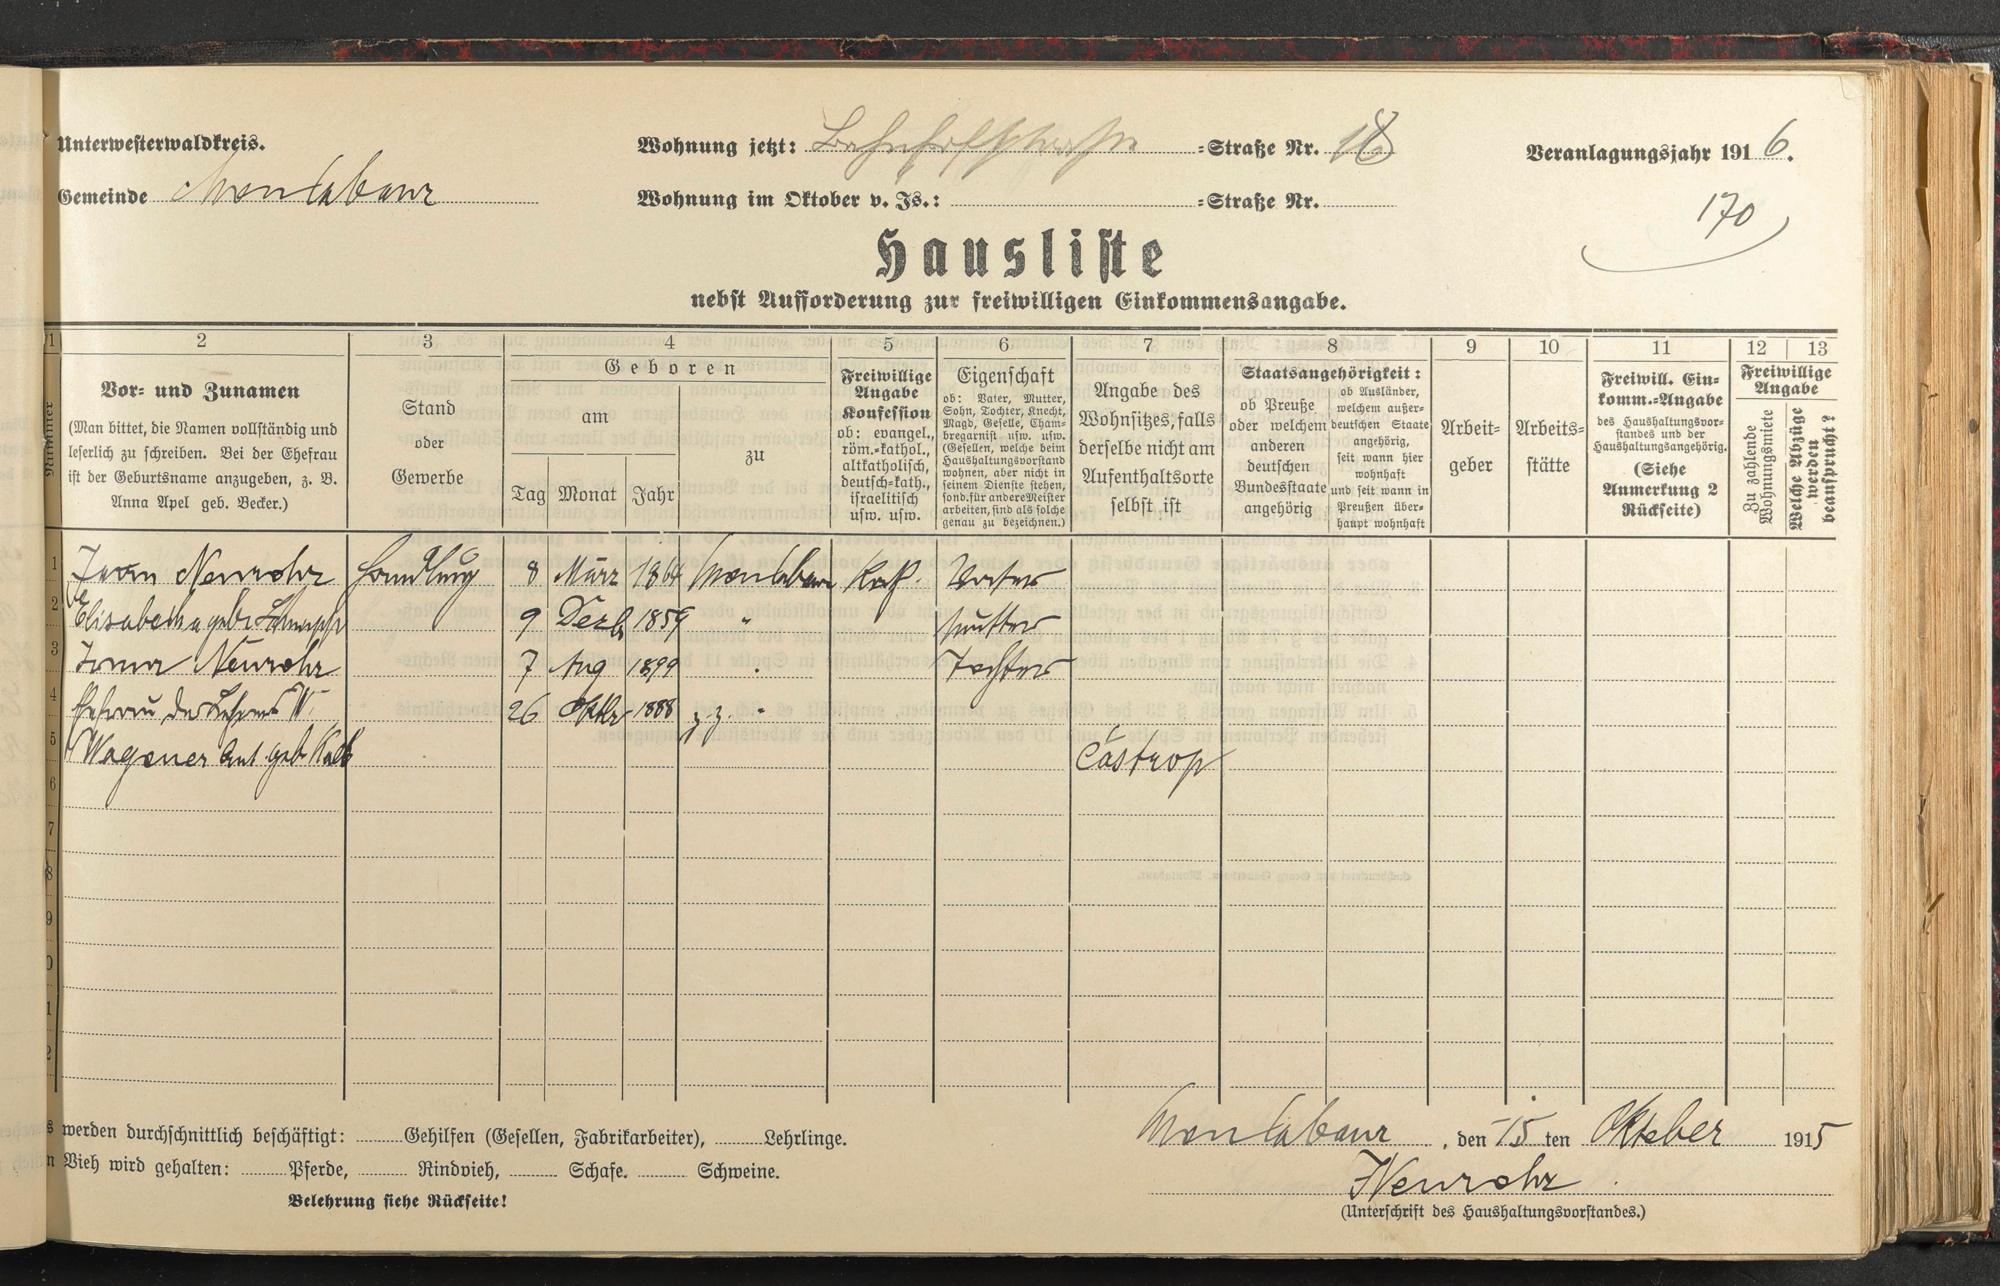 Unterwesterwaldkreis.
Wohnung jetzt: Bahnhofstraße =Straße Nr. 18
Veranlagungsjahr 1916.
Gemeinde Montabaur
Wohnung im Oktober v. Js.: =Straße Nr.
170
Hausliste
nebst Aufforderung zur freiwilligen Einkommensangabe.
1 2 3 4 5 6 7 8 9 10 11 12 13
Nummer
Vor- und Zunamen
(Man bittet, die Namen vollständig und
leserlich zu schreiben. Bei der Ehefrau
ist der Geburtsname anzugeben, z. B.
Anna Apel geb. Becker.)
Stand
oder
Gewerbe
Geboren
am
zu
Tag Monat Jahr
Freiwillige
Angabe
Konfession
ob: evangel.,
röm.-kathol.,
altkatholisch,
deutsch-kath.,
israelitisch
usw. usw.
Eigenschaft
ob: Vater, Mutter,
Sohn, Tochter, Knecht,
Magd, Geselle, Cham-
bregarnist usw. usw.
(Gesellen, welche beim
Haushaltungsvorstand
wohnen, aber nicht in
seinem Dienste stehen,
sond. für andere Meister
arbeiten, sind als solche
genau zu bezeichnen.)
Angabe des
Wohnsitzes, falls
derselbe nicht am
Aufenthaltsorte
selbst ist
Staatsangehörigkeit:
ob Preuße
oder welchem
anderen
deutschen
Bundesstaate
angehörig
ob Ausländer,
welchem außer-
deutschen Staate
angehörig,
seit wann hier
wohnhaft
und seit wann in
Preußen über-
haupt wohnhaft
Arbeit-
geber
Arbeits-
stätte
Freiwill. Ein-
komm.-Angabe
des Haushaltungsvor-
standes und der
Haushaltungsangehörig.
(Siehe
Anmerkung 2
Rückseite)
Freiwillige
Angabe
Zu zahlende
Wohnungsmiete
Welche Abzüge
werden
beansprucht?
1 Neurohr Handlung 8 März 1864 Montabaur Kath. Vater
2 Elisabetha geb. 9 Dezb 1859 " Mutter
3 Irma Neurohr 7 Aug 1899 " Tochter
4 Ehefrau des Lehrers W. 26 Oktbr 1888 z. Z. "
5 Wagener geb. Castrop
6
7
8
9
0
1
2
s werden durchschnittlich beschäftigt: Gehilfen (Gesellen, Fabrikarbeiter), Lehrlinge.
n Vieh wird gehalten: Pferde, Rindvieh, Schafe. Schweine.
Belehrung siehe Rückseite!
Montabaur, den 15 ten Oktober 1915
Neurohr
(Unterschrift des Haushaltungsvorstandes.)